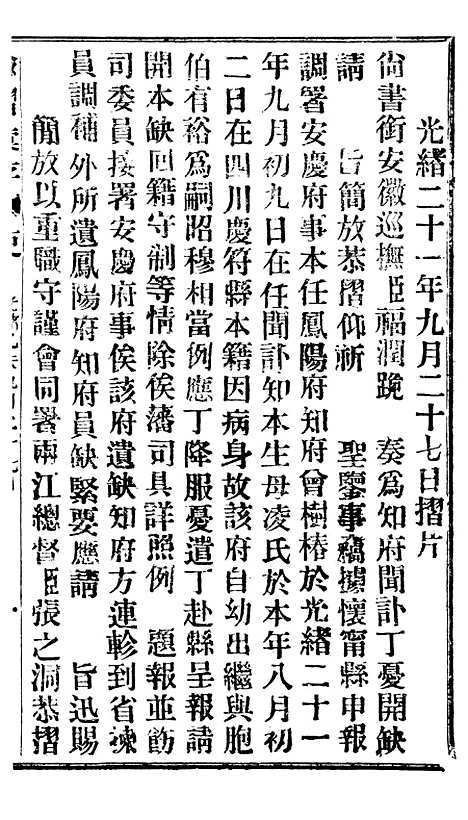 光緒二十一年九月二十七日摺片
尙書銜安徽巡撫臣福潤跪　奏爲知府聞訃丁憂開缺
請　　旨簡放恭摺仰祈　　聖鑒事竊據懷甯縣申報
調署安慶府事本任鳳陽府知府曾樹椿於光緒二十一
年九月初九日在任聞訃知本生母凌氏於本年八月初
二日在四川慶符縣本籍因病身故該府自幼出繼與胞
伯有裕爲嗣昭穆相當例應丁降服憂遣丁赴縣呈報請
開本缺回籍守制等情除俟藩司具詳照例　題報並飭
司委員接署安慶府事俟該府遺缺知府方連軫到省揀
員調補外所遺鳳陽府知府員缺緊要應請　　旨迅賜
簡放以重職守謹會同署兩江總督臣張之洞恭摺